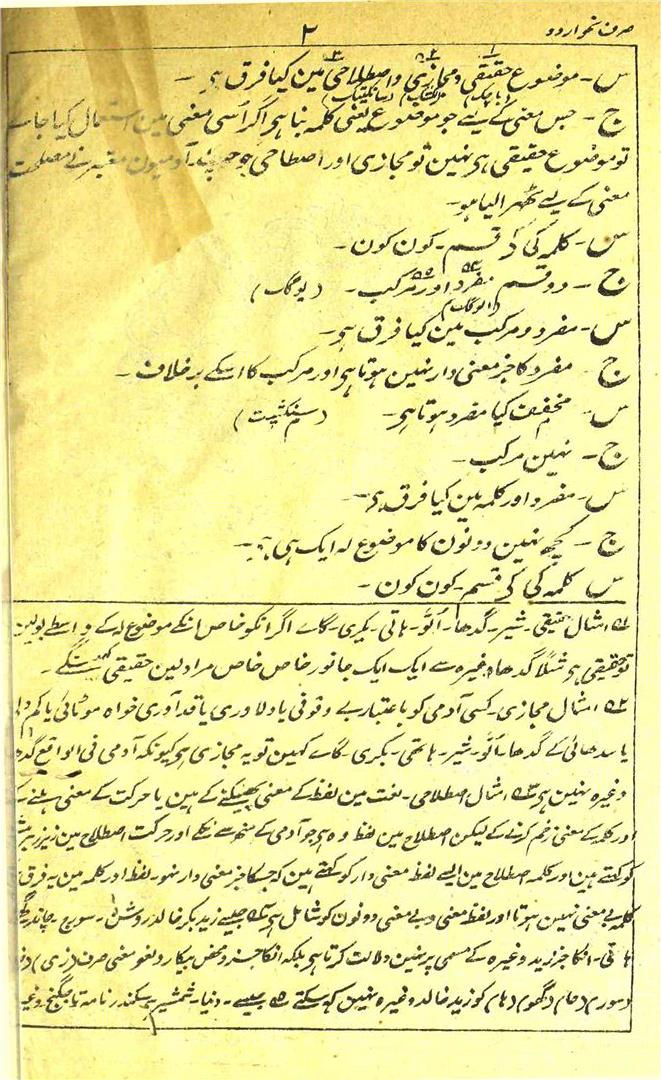 صرف نحو اردو
۲
س۔ موضوع حقیقی و مجازی و اصطلاحی مین کیا فرق ہے۔
ج۔ جس معنی کے لیے جو موضوع یعنی کلمہ بنا ہی اگر اسی معنی مین استعمال کیا جاے
تو موضوع حقیقی ہی نہین تو مجازی اور اصطلاحی جو چند آدمیون معتبر نے مصلحت
معنی کے لیے ٹھرا لیا ہو۔
س۔ کلمہ کی کَ قسم۔ کون کون۔
ج۔ دو قسم مفرد اور مرکب۔ (یوگک)
س۔ مفرد و مرکب مین کیا فرق ہی۔
ج۔ مفرد کا جز معنی دار نہین ہوتا ہی اور مرکب کا اسکے برخلاف۔
س۔ مخفف کیا مفرد ہوتا ہی۔
ج۔ نہین مرکب۔
س۔ مفرد اور کلمہ مین کیا فرق ہی۔
ج۔ کچھ نہین دونون کا موضوع لہ ایک ہی ہی۔
س کلمہ کی کَ قسم۔ کون کون۔
۱ے مثال حقیقی۔ شیر۔ گدھا۔ اُلّو۔ ہاتی۔ بکری۔ گاے اگر انکو خاص انکے موضوع لہ کے واسطے بولین
تو حقیقی ہی مثلاً گدھا وغیرہ سے ایک ایک جانور خاص خاص مراد لین حقیقی کہینگے۔
۲ے مثال مجازی۔ کسی آدمی کو باعتبار بے وقوفی یا دلاوری یا قد آوری خواہ موٹائی یا کم
یا سدھائی کے گدھا۔ اُلّو۔ شیر۔ ہاتھی۔ بکری۔ گاے کہین تو یہ مجازی ہی کیونکہ آدمی فی الواقع گدھا
وغیرہ نہین ہی ۳ے مثال اصطلاحی۔ لغت مین لفظ کے معنی پھینکنے کے ہین یا حرکت کے معنی ہلنے کے
اور کلمہ کے معنی زخم کرنے کے لیکن اصطلاح مین لفظ وہ ہی جو آدمی کے منھ سے نکلے اور حرکت اصطلاح مین زیر زبر
کو کہتے ہین اور کلمہ اصطلاح مین ایسے لفظ معنی دار کو کہتے ہین کہ جسکا جز معنی دار نہو۔ لفظ اور کلمہ مین یہ فرق
کلمہ بے معنی نہین ہوتا اور لفظ معنی و بے معنی دونون کو شامل ہی ۴ے جیسے زید بکر خالد روشن۔ سورج۔ چاند
ہاتی۔ انکا جز زید وغیرہ کے مسمی پر نہین دلالت کرتا ہی بلکہ انکا جز محض بیکار و لغو معنی صرف (زی)
(سور) (چا) (گھو) (ہا) کو زید خالد وغیرہ نہین کہ سکتے ۵ے جیسے۔ دنیا۔ شمشیر۔ سکندر نامہ